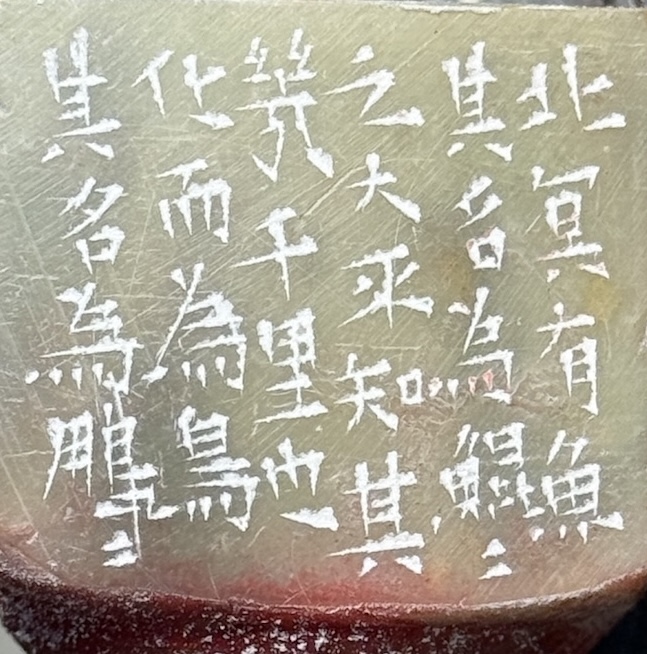 北冥有魚
其名為鯤〻
之大不知其
幾千里也
化而為鳥
其名為鵬〻